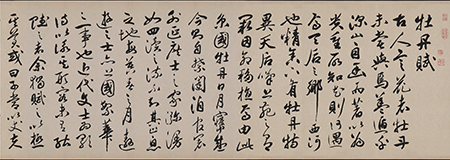 牡丹賦
古人言花者牡丹
未嘗與焉蓋遁乎
深山自幽而著以為
貴重所知花則何遇
焉天后之鄉西河
也精舍下有牡丹特
異天后嘆上苑之有
因命移植焉由此
京國牡丹日月寖盛
今則自禁闥洎官署
外延庶士之家瀰漫
如四瀆之流不知其止息
之地每暮春之月遨
遊之士亦上國繁華
之一事也近代文士為歌
詩以詠形容未有能
賦之者余獨賦之以極
其美或曰子常以丈夫